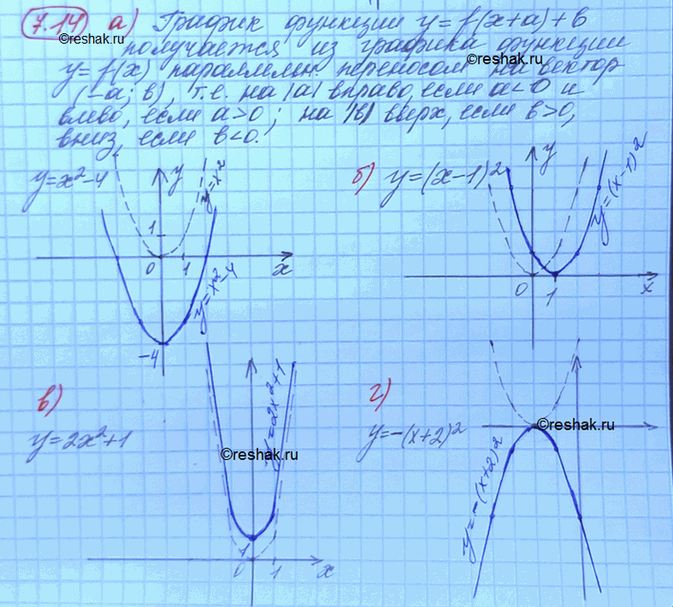 7.14 а) График функции y=f(x+a)+b
©reshak.ru
получается из графика функции
y=f(x) параллелн. переносом на вектор
©reshak.ru
(-a; b), т.е. на |a| вправо, если a<0 и
влево, если a>0; на |b| вверх, если b>0,
вниз, если b<0.
y=x²-4
y
y=x²
1
0
1
x
y=x²-4
-4
б) y=(x-1)²
y
y=(x-1)²
0
1
x
в)
y=2x²+1
y=2x²+1
©reshak.ru
1
0
1
x
г)
y=-(x+2)²
©reshak.ru
y=-(x+2)²